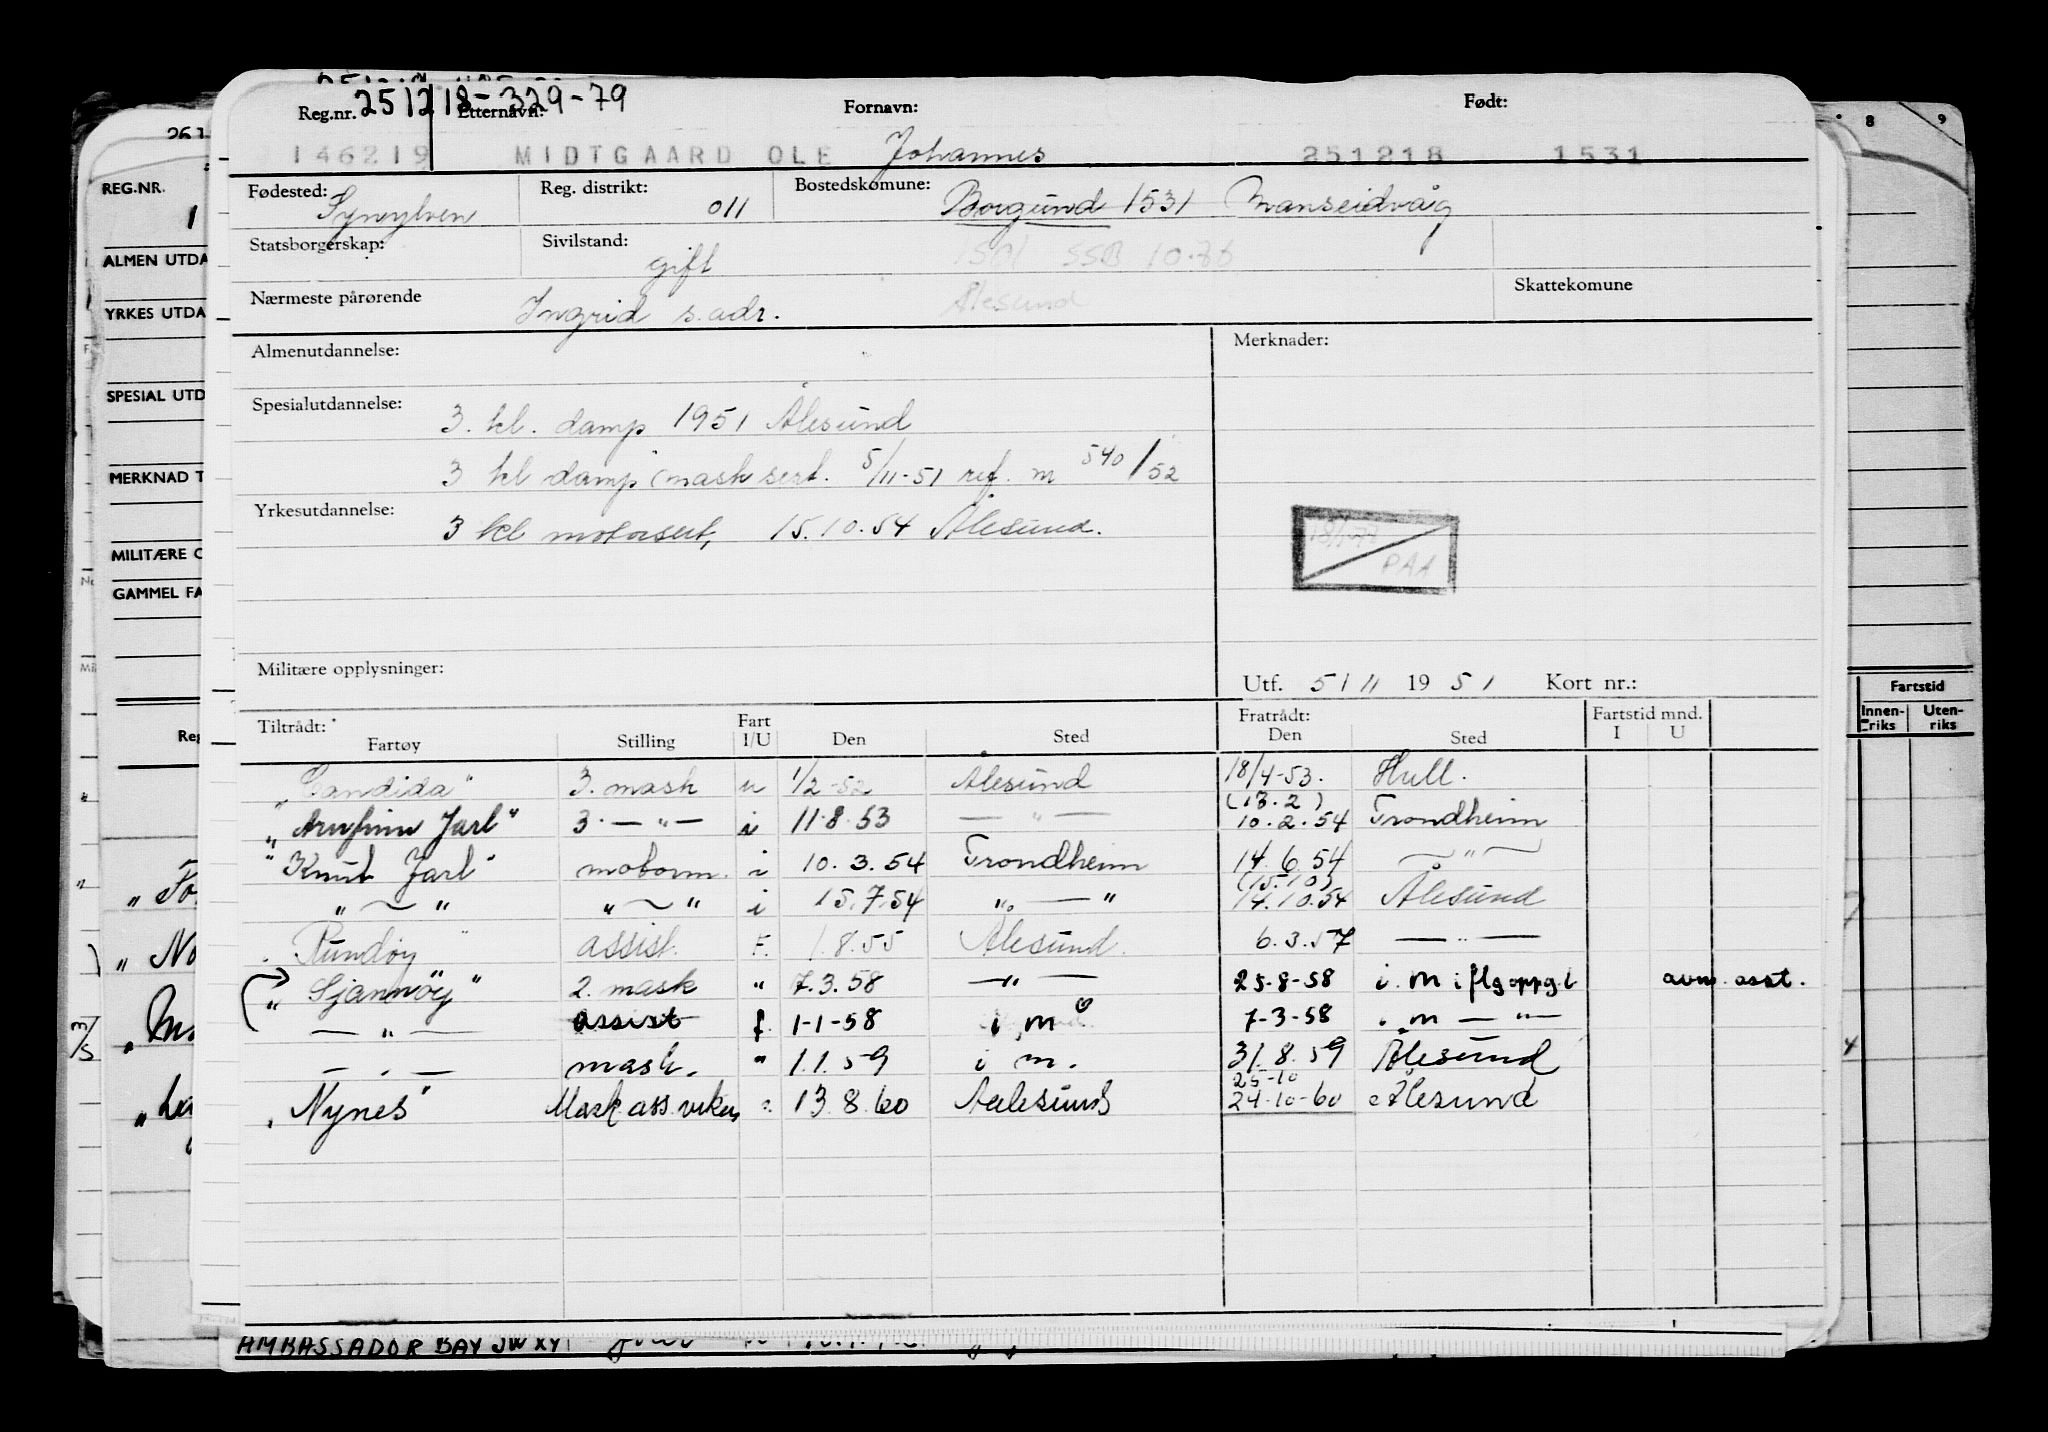 251218-329-79
Reg.nr. Etternavn: Fornavn: Født:
146219 MIDTGAARD OLE Johannes 251218 1531
Fødested: Synylven Reg. distrikt: 011 Bostedskomune: Borgund 1531 Mauseidvåg
Statsborgerskap: Sivilstand: gift SSB 10.76
Nærmeste pårørende Ingrid s. adr. Ålesund Skattekomune
Almenutdannelse: Merknader:
Spesialutdannelse: 3. kl. damp 1951 Ålesund
3 kl damp mask sert. 5/11-51 ref. m 540/52
Yrkesutdannelse: 3 kl motorsert, 15.10.54 Ålesund.
PAA
Militære opplysninger: Utf. 5/11 1951 Kort nr.:
Tiltrådt: Fart Fratrådt: Fartstid mnd.
Fartøy Stilling I/U Den Sted Den Sted I U
"Candida" 3. mask u 1/2-52 Ålesund 18/4-53. Hull.
(13.2)
"Arnfinn Jarl" 3. — " — i 11.8.53 — " — 10.2.54 Trondheim
"Knut Jarl" motorm. i 10.3.54 Trondheim 14.6.54 — " —
(15.10)
" — " " — " i 15.7.54 " — " 14.10.54 Ålesund
"Rundøy" assist. F. 1.8.55 Ålesund. 6.3.57 — " —
"Sjannøy" 2. mask " 7.3.58 — " — 25-8-58 i. m i flg oppg. avm. asst.
— " — assist f. 1-1-58 i m 7-3-58 i m — " —
— " — mask. " 1.1.59 i m. 31.8.59 Ålesund
25-10
"Nynes" Mask.ass. 13.8.60 Aalesund 24-10-60 Ålesund
REG.NR.
1
ALMEN UTDA
YRKES UTDA
SPESIAL UTD
MERKNAD T
MILITÆRE O
GAMMEL FA
Reg
8 9
Fartstid
Innen-riks Uten-riks
AMBASSADOR BAY JWXY